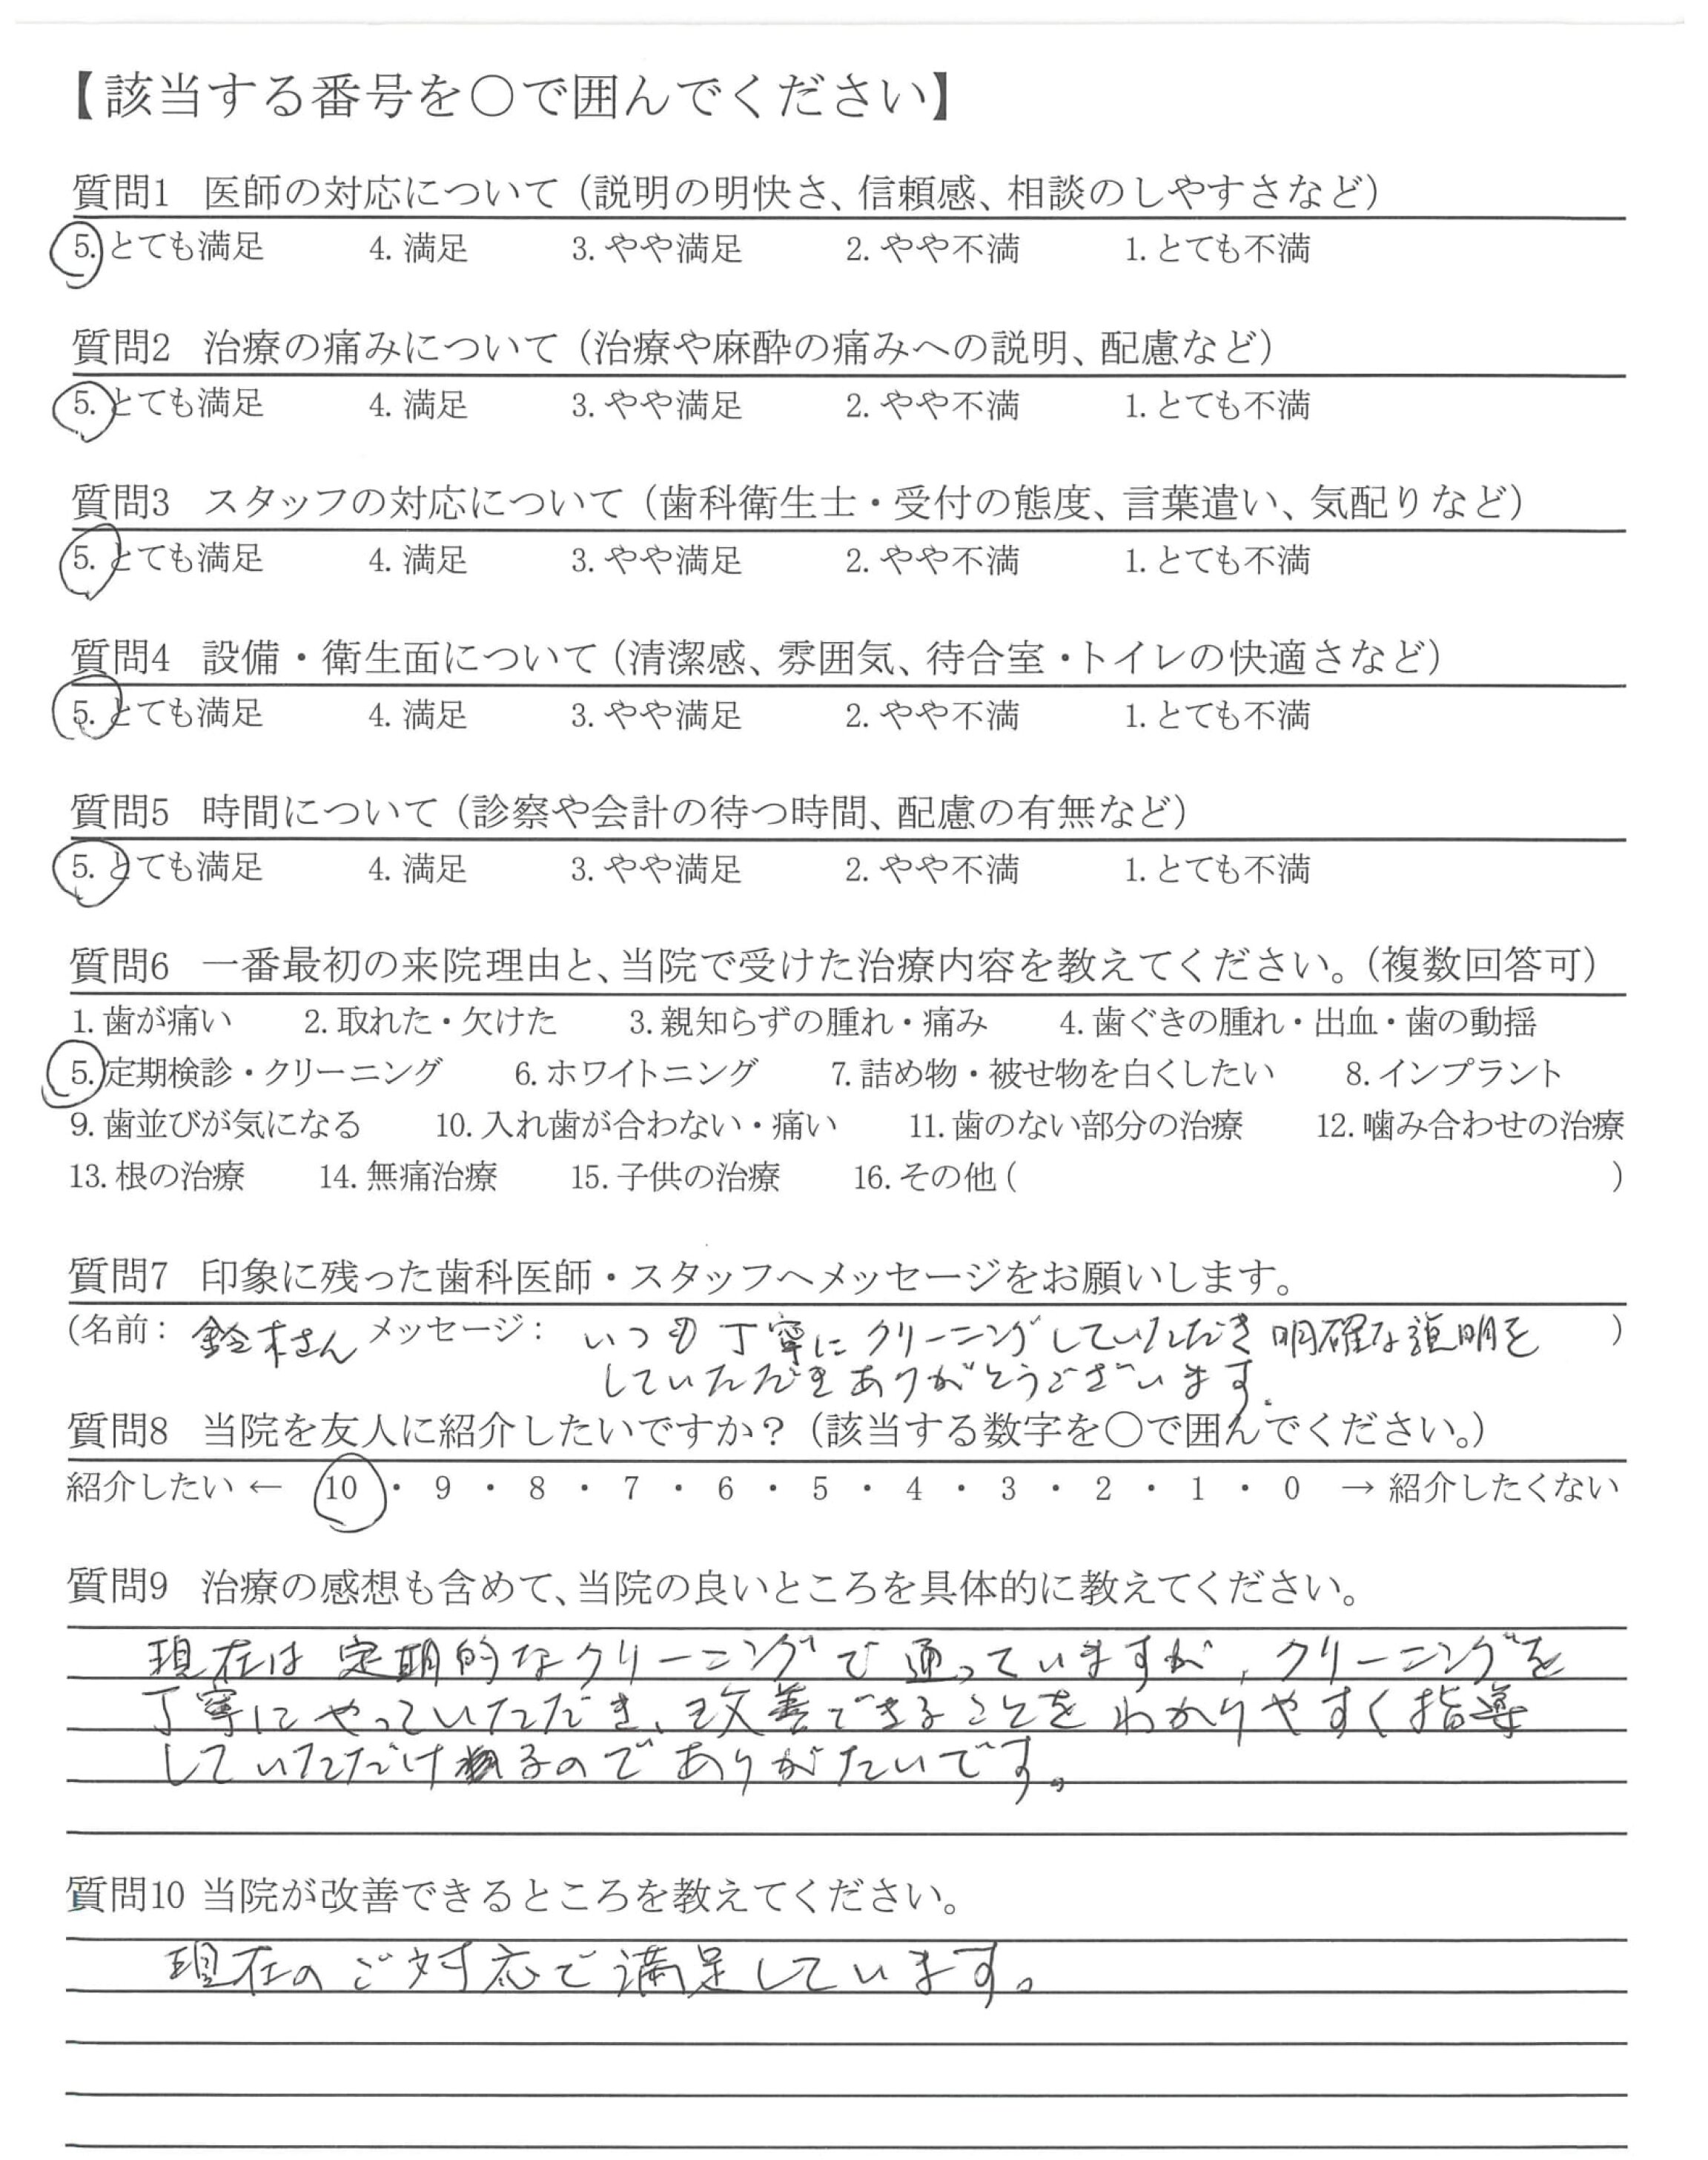 【該当する番号を○で囲んでください】
質問1 医師の対応について（説明の明快さ、信頼感、相談のしやすさなど）
5. とても満足 4. 満足 3. やや満足 2. やや不満 1. とても不満
質問2 治療の痛みについて（治療や麻酔の痛みへの説明、配慮など）
5. とても満足 4. 満足 3. やや満足 2. やや不満 1. とても不満
質問3 スタッフの対応について（歯科衛生士・受付の態度、言葉遣い、気配りなど）
5. とても満足 4. 満足 3. やや満足 2. やや不満 1. とても不満
質問4 設備・衛生面について（清潔感、雰囲気、待合室・トイレの快適さなど）
5. とても満足 4. 満足 3. やや満足 2. やや不満 1. とても不満
質問5 時間について（診察や会計の待つ時間、配慮の有無など）
5. とても満足 4. 満足 3. やや満足 2. やや不満 1. とても不満
質問6 一番最初の来院理由と、当院で受けた治療内容を教えてください。（複数回答可）
1. 歯が痛い 2. 取れた・欠けた 3. 親知らずの腫れ・痛み 4. 歯ぐきの腫れ・出血・歯の動揺
5. 定期検診・クリーニング 6. ホワイトニング 7. 詰め物・被せ物を白くしたい 8. インプラント
9. 歯並びが気になる 10. 入れ歯が合わない・痛い 11. 歯のない部分の治療 12. 噛み合わせの治療
13. 根の治療 14. 無痛治療 15. 子供の治療 16. その他（ ）
質問7 印象に残った歯科医師・スタッフへメッセージをお願いします。
（名前： 鈴木さん メッセージ： いつも丁寧にクリーニングしていただき明確な説明を ）
していただきありがとうございます。
質問8 当院を友人に紹介したいですか？（該当する数字を○で囲んでください。）
紹介したい ← 10 ・ 9 ・ 8 ・ 7 ・ 6 ・ 5 ・ 4 ・ 3 ・ 2 ・ 1 ・ 0 → 紹介したくない
質問9 治療の感想も含めて、当院の良いところを具体的に教えてください。
現在は定期的なクリーニングで通っていますが、クリーニングを
丁寧にやっていただき、改善できることをわかりやすく指導
していただけるのでありがたいです。
質問10 当院が改善できるところを教えてください。
現在のご対応で満足しています。